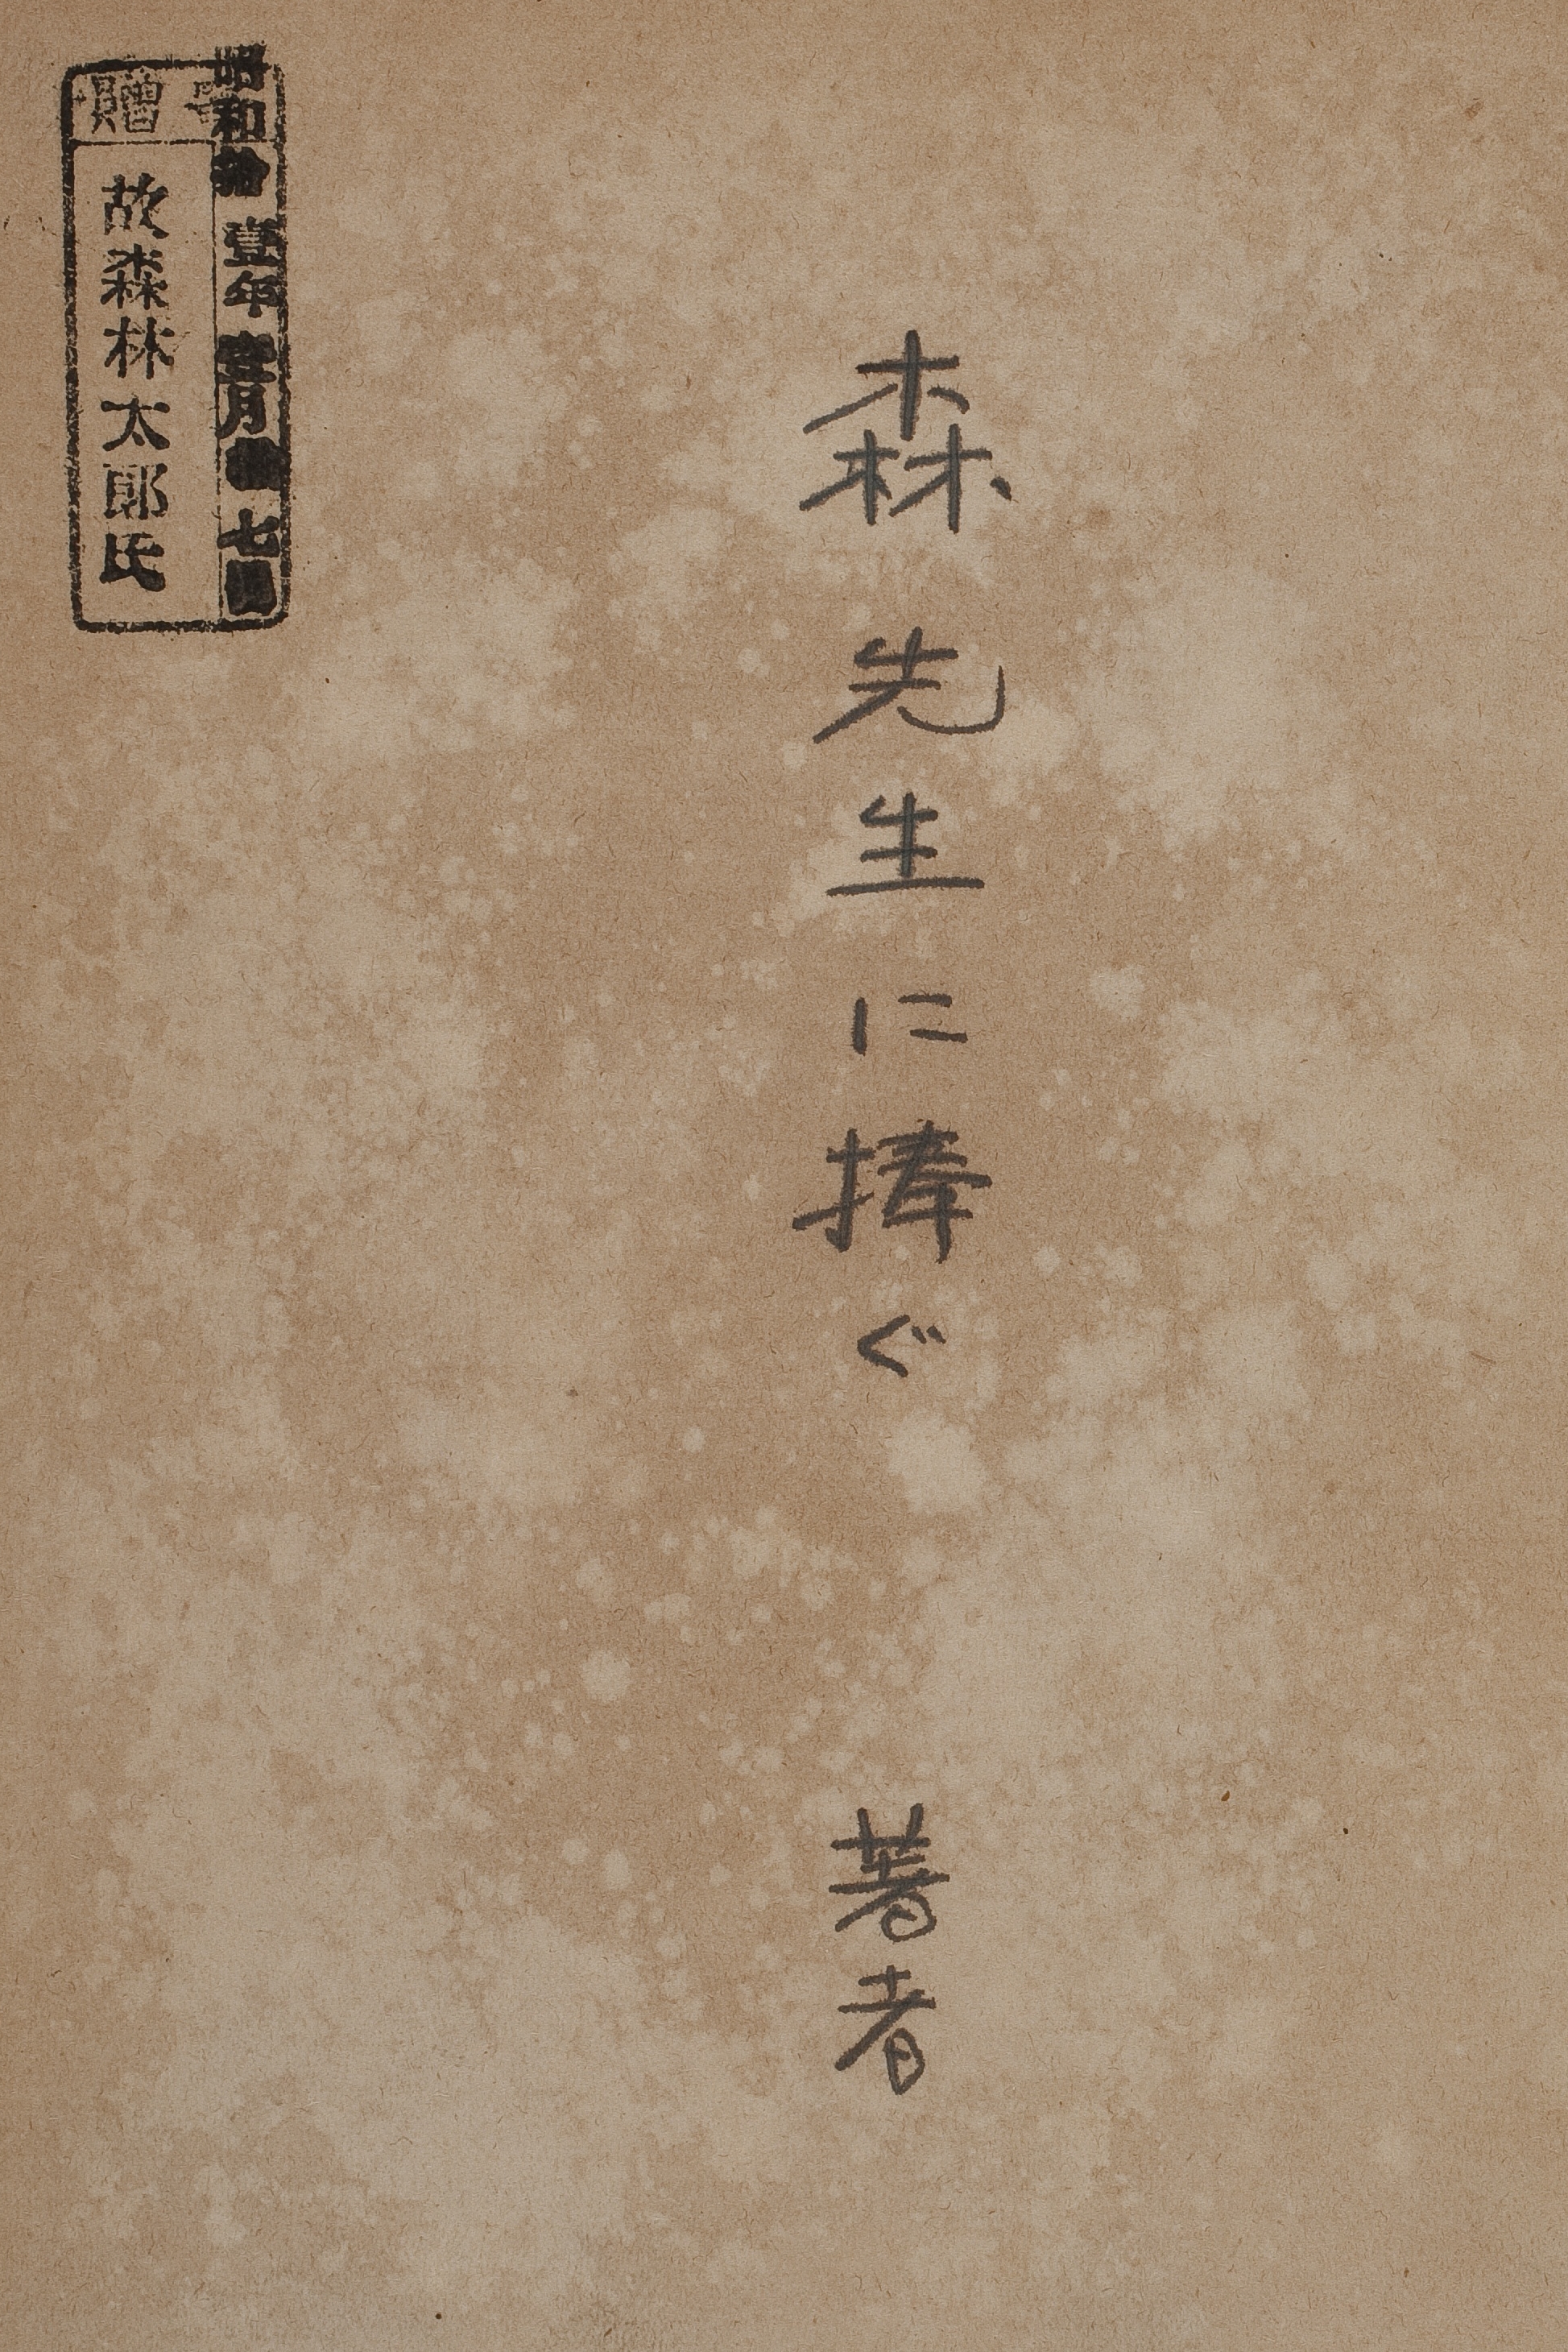 森先生に捧ぐ
著者
贈
昭和拾壹年 月 七
故森林太郎氏